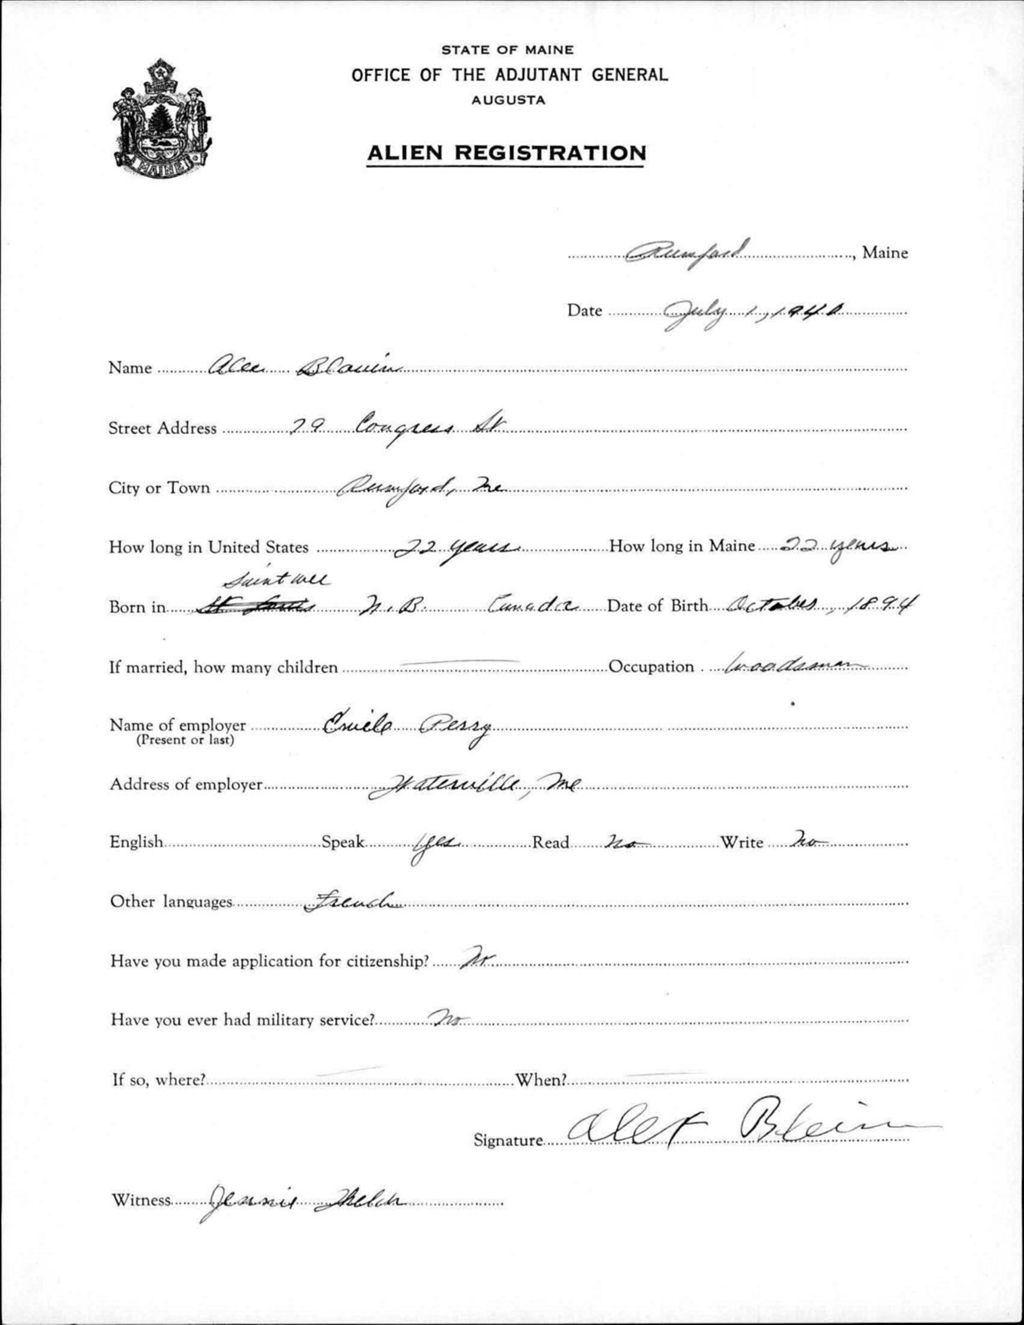 STATE OF MAINE
OFFICE OF THE ADJUTANT GENERAL
AUGUSTA
ALIEN REGISTRATION
MAINE
Rumford, Maine
Date July 1, 1940
Name Alec Blouin
Street Address 79 Congress St
City or Town Rumford, Me
How long in United States 22 years How long in Maine 22 years
Born in N.B. Canada Date of Birth October, 1894
If married, how many children Occupation Woodsman
Name of employer Emile Perry
(Present or last)
Address of employer Waterville, Me
English Speak Yes Read No Write No
Other languages French
Have you made application for citizenship? No
Have you ever had military service? No
If so, where? When?
Signature Alex
Witness Jennie